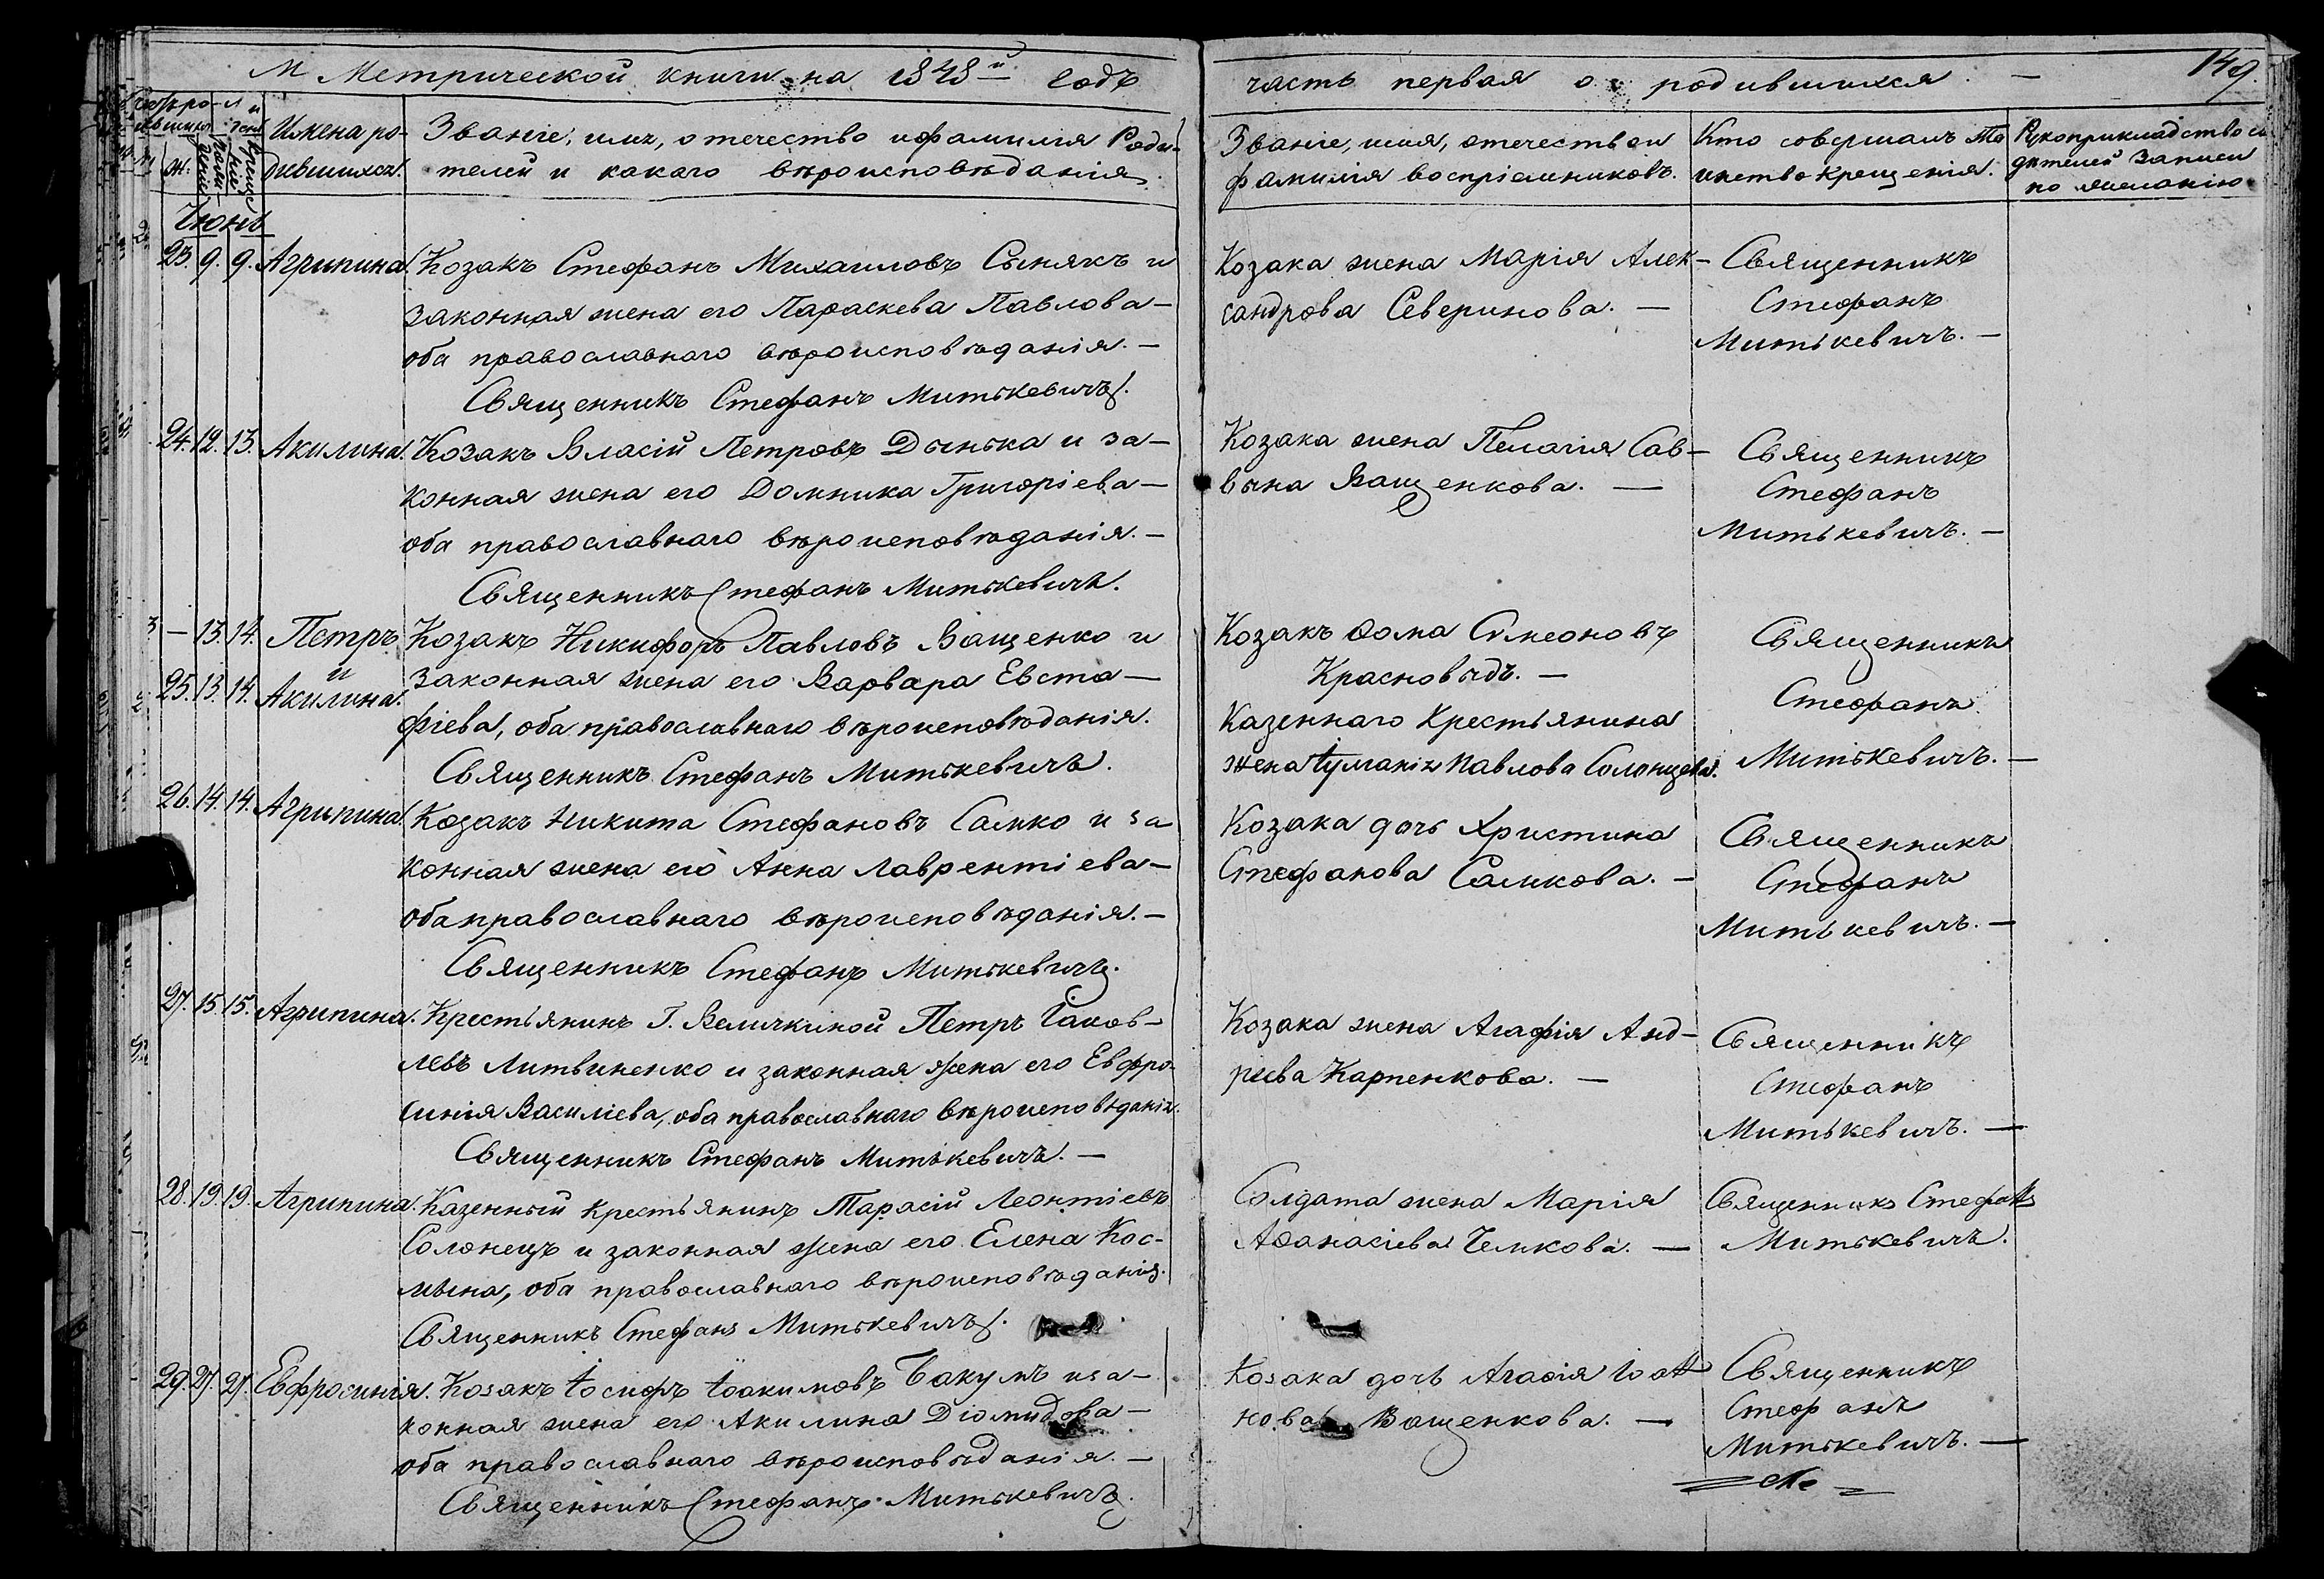 М Метрической книги на 1848й годъ
часть первая о родившихся. — 149.
Имена ро-
дившихся.
Званіе, имя, отечество и фамилія Роди-
телей и какаго вѣроисповѣданія.
Званіе, имя, отечество и
фамилія воспріемниковъ.
Кто совершалъ Та
инство крещенія.
Рукоприкладство сви
дѣтелей записи
по желанію
Июнь
23. 9. 9. Агрипина. Козакъ Стефанъ Михаиловъ Сынякъ и
законная жена его Параскева Павлова—
оба православнаго вѣроисповѣданія.—
Священникъ Стефанъ Митькевичъ.
Козака жена Марія Алек-
сандрова Северинова. —
Священникъ
Стефанъ
Митькевичъ. —
24. 12. 13. Акилина. Козакъ Власій Петровъ Дынька и за-
конная жена его Домника Григоріева—
оба православнаго вѣроисповѣданія.—
Священникъ Стефанъ Митькевичъ.
Козака жена Пелагія Сав-
вына Ващенкова. —
Священникъ
Стефанъ
Митькевичъ. —
3 — 13. 14. Петръ Козакъ Никифоръ Павловъ Ващенко и
и
25. 13. 14. Акилина. законная жена его Варвара Евста—
фіева, оба православнаго вѣроисповѣданія.
Священникъ Стефанъ Митькевичъ.
Козакъ Ѳома Симеоновъ
Красновыдъ. —
Казеннаго Крестьянина
жена Іуліанія Павлова Солонцева.
Священникъ
Стефанъ
Митькевичъ. —
26. 14. 14. Агрипина. Козакъ Никита Стефановъ Самко и за
конная жена его Анна Лаврентіева—
оба православнаго вѣроисповѣданія.—
Священникъ Стефанъ Митькевичъ.
Козака дочь Христина
Стефанова Самкова. —
Священникъ
Стефанъ
Митькевичъ. —
27. 15. 15. Агрипина. Крестьянинъ Г. Величкиной Петръ Іаков-
левъ Литвиненко и законная жена его Евфро-
синія Василіева, оба православнаго вѣроисповѣданія.
Священникъ Стефанъ Митькевичъ. —
Козака жена Агафія Анд-
реева Карпенкова. —
Священникъ
Стефанъ
Митькевичъ. —
28. 19. 19. Агрипина. Казенный крестьянинъ Тарасій Леонтіевъ
Солонецъ и законная жена его Елена Кос-
мына, оба православнаго вѣроисповѣданія.
Священникъ Стефанъ Митькевичъ.
Солдата жена Марія
Аѳанасіева Чемкова. —
Священникъ Стефанъ
Митькевичъ.
29. 27. 27. Евфросинія. Козакъ Іосифъ Іоакимовъ Бакумъ и за-
конная жена его Акилина Діомидова—
оба православнаго вѣроисповѣданія.—
Священникъ Стефанъ Митькевичъ.
Козака дочь Агафія Іоан
нова Ващенкова. —
Священникъ
Стефанъ
Митькевичъ. —